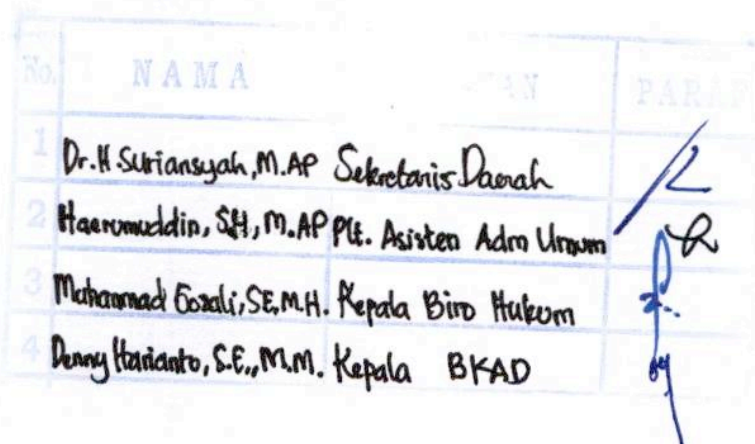 No. NAMA PARAF
1 Dr. H. Suriansyah, M.AP Sekretaris Daerah
2 Haeromuddin, S.H, M.AP Plt. Asisten Adm Umum
3 Muhammad Gozali, SE, M.H. Kepala Biro Hukum
4 Denny Harianto, S.E., M.M. Kepala BKAD